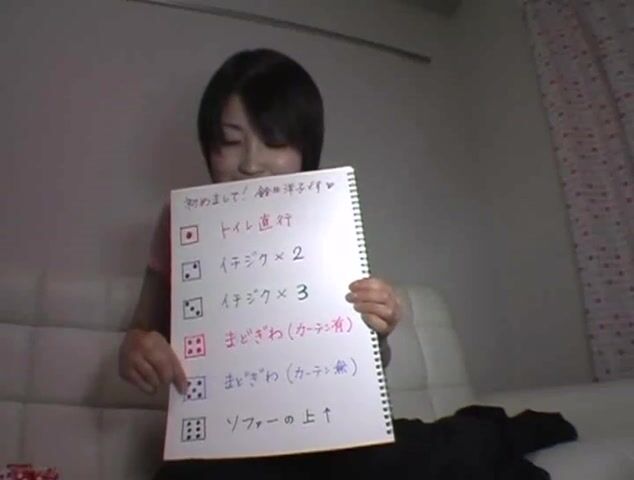 初めまして! 鈴木洋子です♡
トイレ直行
イチジク×2
イチジク×3
まどぎわ(カーテン有)
まどぎわ(カーテン無)
ソファーの上↑